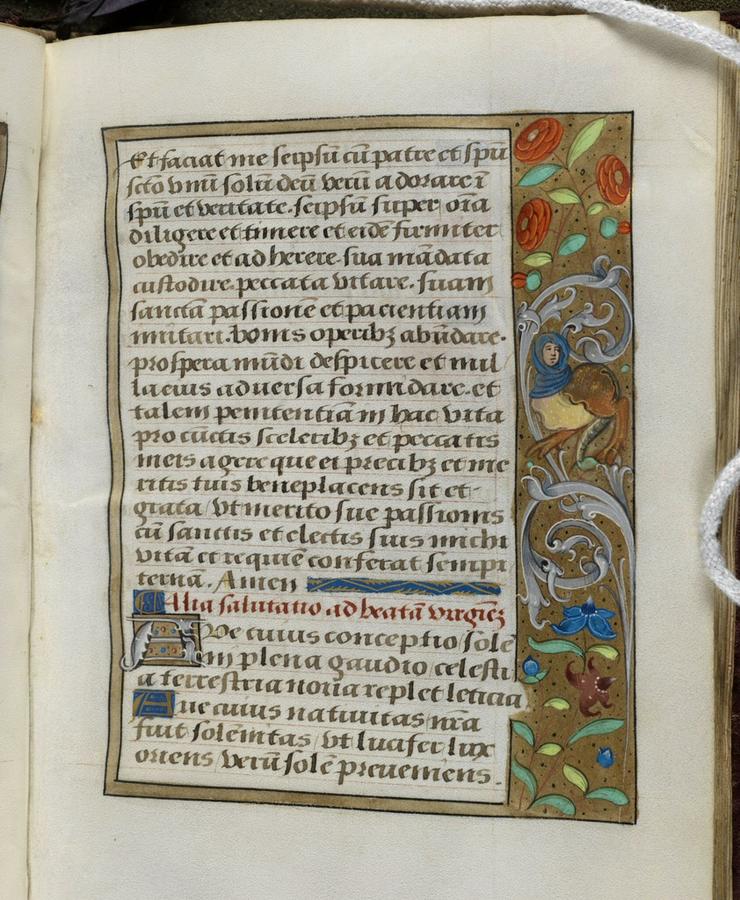 Et faciat me seipsū cū patre et spū
scto vnū solū deū verū adorare ī
spū et veritate. seipsū super oīa
diligere et timere et eide firmiter
obedire et ad herere. sua mādata
custodire. peccata vitare. suam
sanctā passionē et pacientiam
imitari. bonis operibꝫ abūdare.
prospera mūdi despicere et nil
la eius aduersa formidare. et
talem penitentiā in hac vita
pro cūctis sceleribꝫ et peccatis
meis agere que ei precibꝫ et me
ritis tuis beneplacens sit et
grata / vt merito sue passionis
cū sanctis et electis suis michi
vitā et requiē conferat sempi
ternā. Amen
Alia salutatio ad beatā virginē
Aue cuius conceptio / sole
ni plena gaudio / celesti
a terrestria noua replet leticia
Aue cuius natiuitas / nrā
fuit solēnitas / vt lucifer lux
oriens / verū solē preueniens.